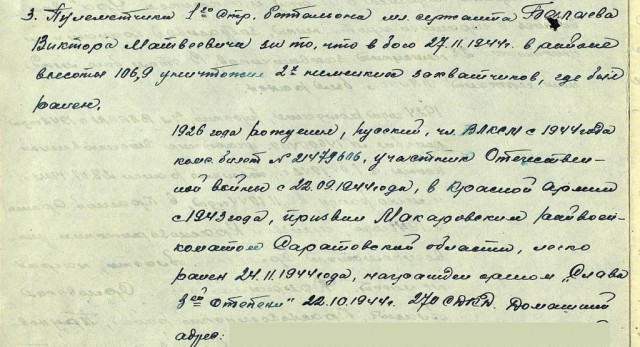 3. Пулеметчика 1го стр. батальона мл. сержанта
Виктора Матвеевича за то, что в бою 27.11.1944г. в районе
высоты 106,9 уничтожил 2х немецких захватчиков, где был
ранен.
1926 года рождения, русский, чл. ВЛКСМ с 1944 года
комс. билет № 21479606, участник Отечествен-
ной войны с 22.09.1944 года, в Красной Армии
с 1943 года, призван Макаровским райвоен-
коматом Саратовской области, легко
ранен 24.11.1944 года, награжден орденом „Слава
3ей степени" 22.10.1944г. 270 СДКД. Домашний
адрес: